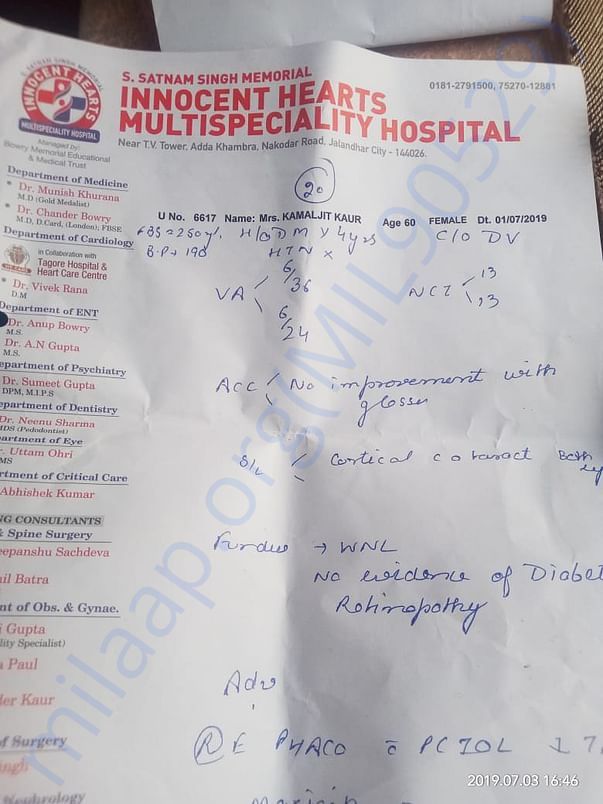 S. SATNAM SINGH MEMORIAL
INNOCENT HEARTS
MULTISPECIALITY HOSPITAL
0181-2791500, 75270-12881
Near T.V. Tower, Adda Khambra, Nakodar Road, Jalandhar City - 144026.
S. SATNAM SINGH MEMORIAL
INNOCENT HEARTS
MULTISPECIALITY HOSPITAL
Managed by:
Bowry Memorial Educational
& Medical Trust
20
U No. 6617 Name: Mrs. KAMALJIT KAUR Age 60 FEMALE Dt. 01/07/2019
Department of Medicine
Dr. Munish Khurana
M.D (Gold Medalist)
Dr. Chander Bowry
M.D, D.Card, (London); FBSE
Department of Cardiology
in Collaboration with
Tagore Hospital &
Heart Care Centre
Dr. Vivek Rana
D.M
Department of ENT
Dr. Anup Bowry
M.S.
Dr. A.N Gupta
M.S.
epartment of Psychiatry
Dr. Sumeet Gupta
DPM, M.I.P.S
epartment of Dentistry
Dr. Neenu Sharma
MDS (Pedodontist)
partment of Eye
r. Uttam Ohri
MS
rtment of Critical Care
Abhishek Kumar
NG CONSULTANTS
& Spine Surgery
eepanshu Sachdeva
il Batra
nt of Obs. & Gynae.
i Gupta
lity Specialist)
a Paul
der Kaur
of Surgery
ingh
Nephrology
FBS = 250 H/O DM x 4 yrs C/O DV
B.P → 190 HTN x
VA 6/36 NCT 13
6/24 13
ACC No improvement with
S/L Cortical cataract Both
Fundus → WNL
No evidence of Diabet
Retinopathy
Adv
RE PHACO c PCIOL
milaap.org(MIL905529)
2019.07.03 16:46